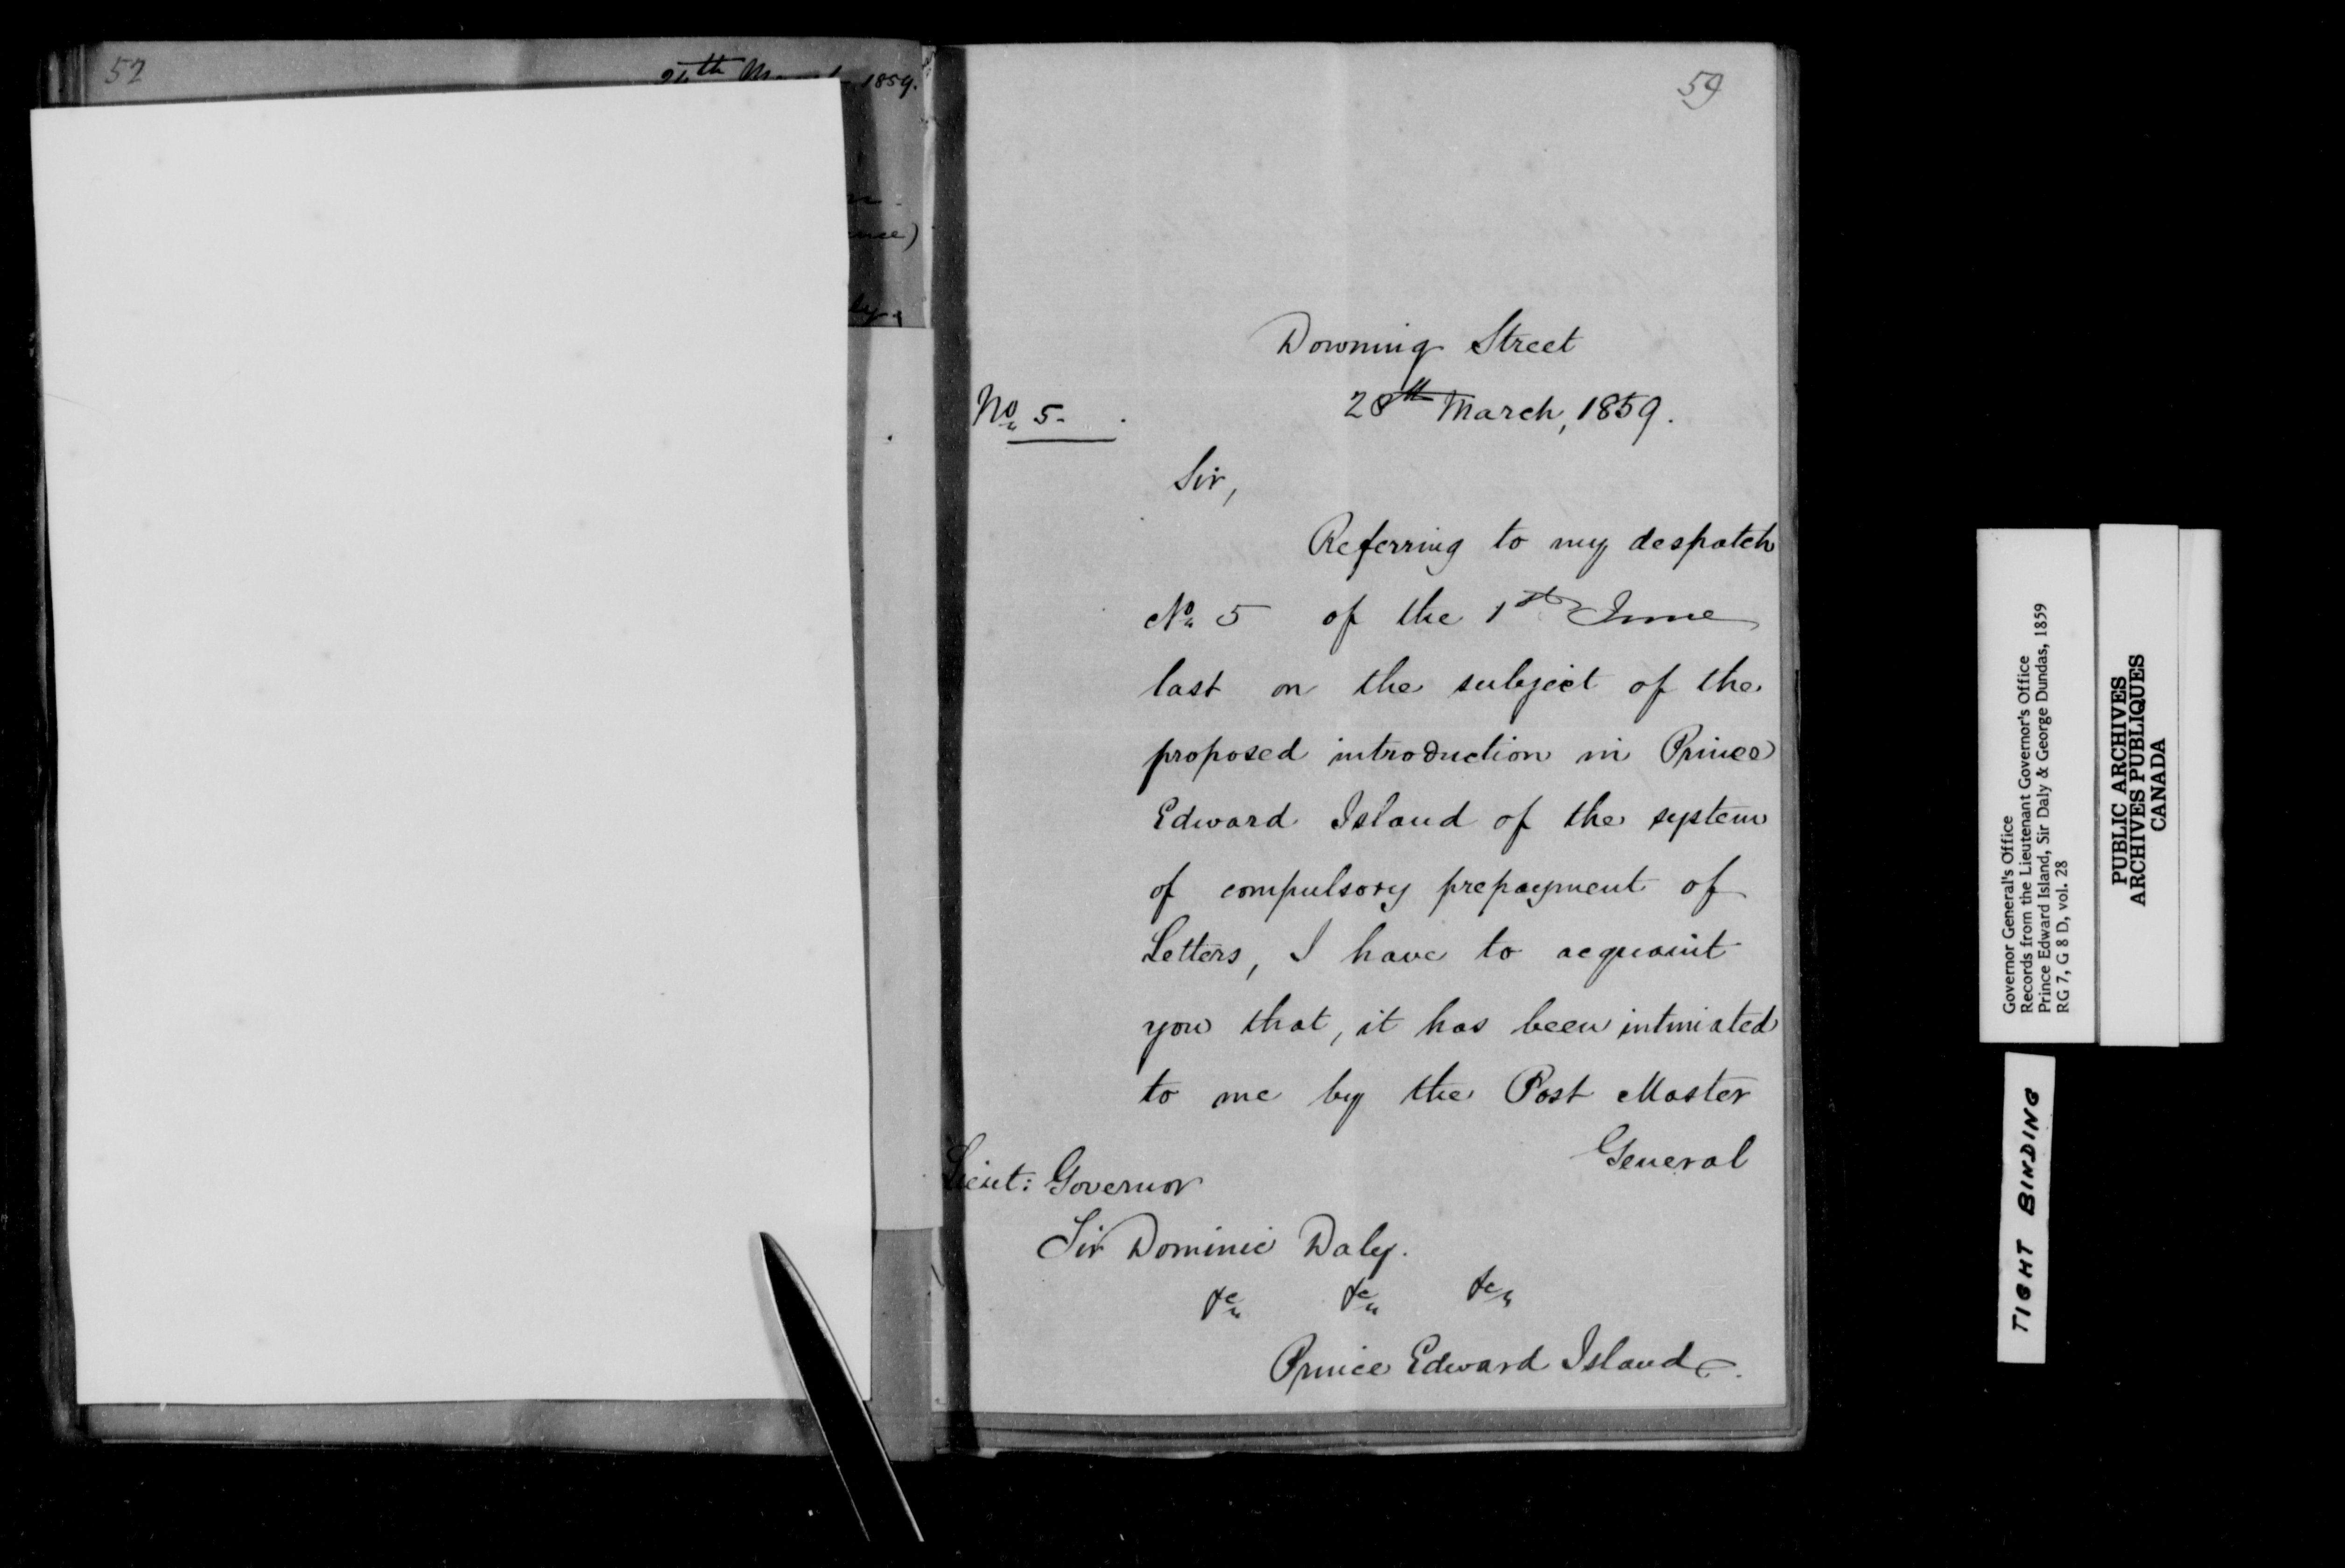 52
1859.
59
Downing Street
No 5.
28th March, 1859.
Sir,
Referring to my despatch
No 5 of the 1st June
last on the subject of the
proposed introduction in Prince
Edward Island of the system
of compulsory prepayment of
Letters, I have to acquaint
you that, it has been intimated
to me by the Post Master
General
Lieut: Governor
Sir Dominic Daly.
&c &c &c
Prince Edward Island.
Governor General's Office
Records from the Lieutenant Governor's Office
Prince Edward Island, Sir Daly & George Dundas, 1859
RG 7, G 8 D, vol. 28
PUBLIC ARCHIVES
ARCHIVES PUBLIQUES
CANADA
TIGHT BINDING